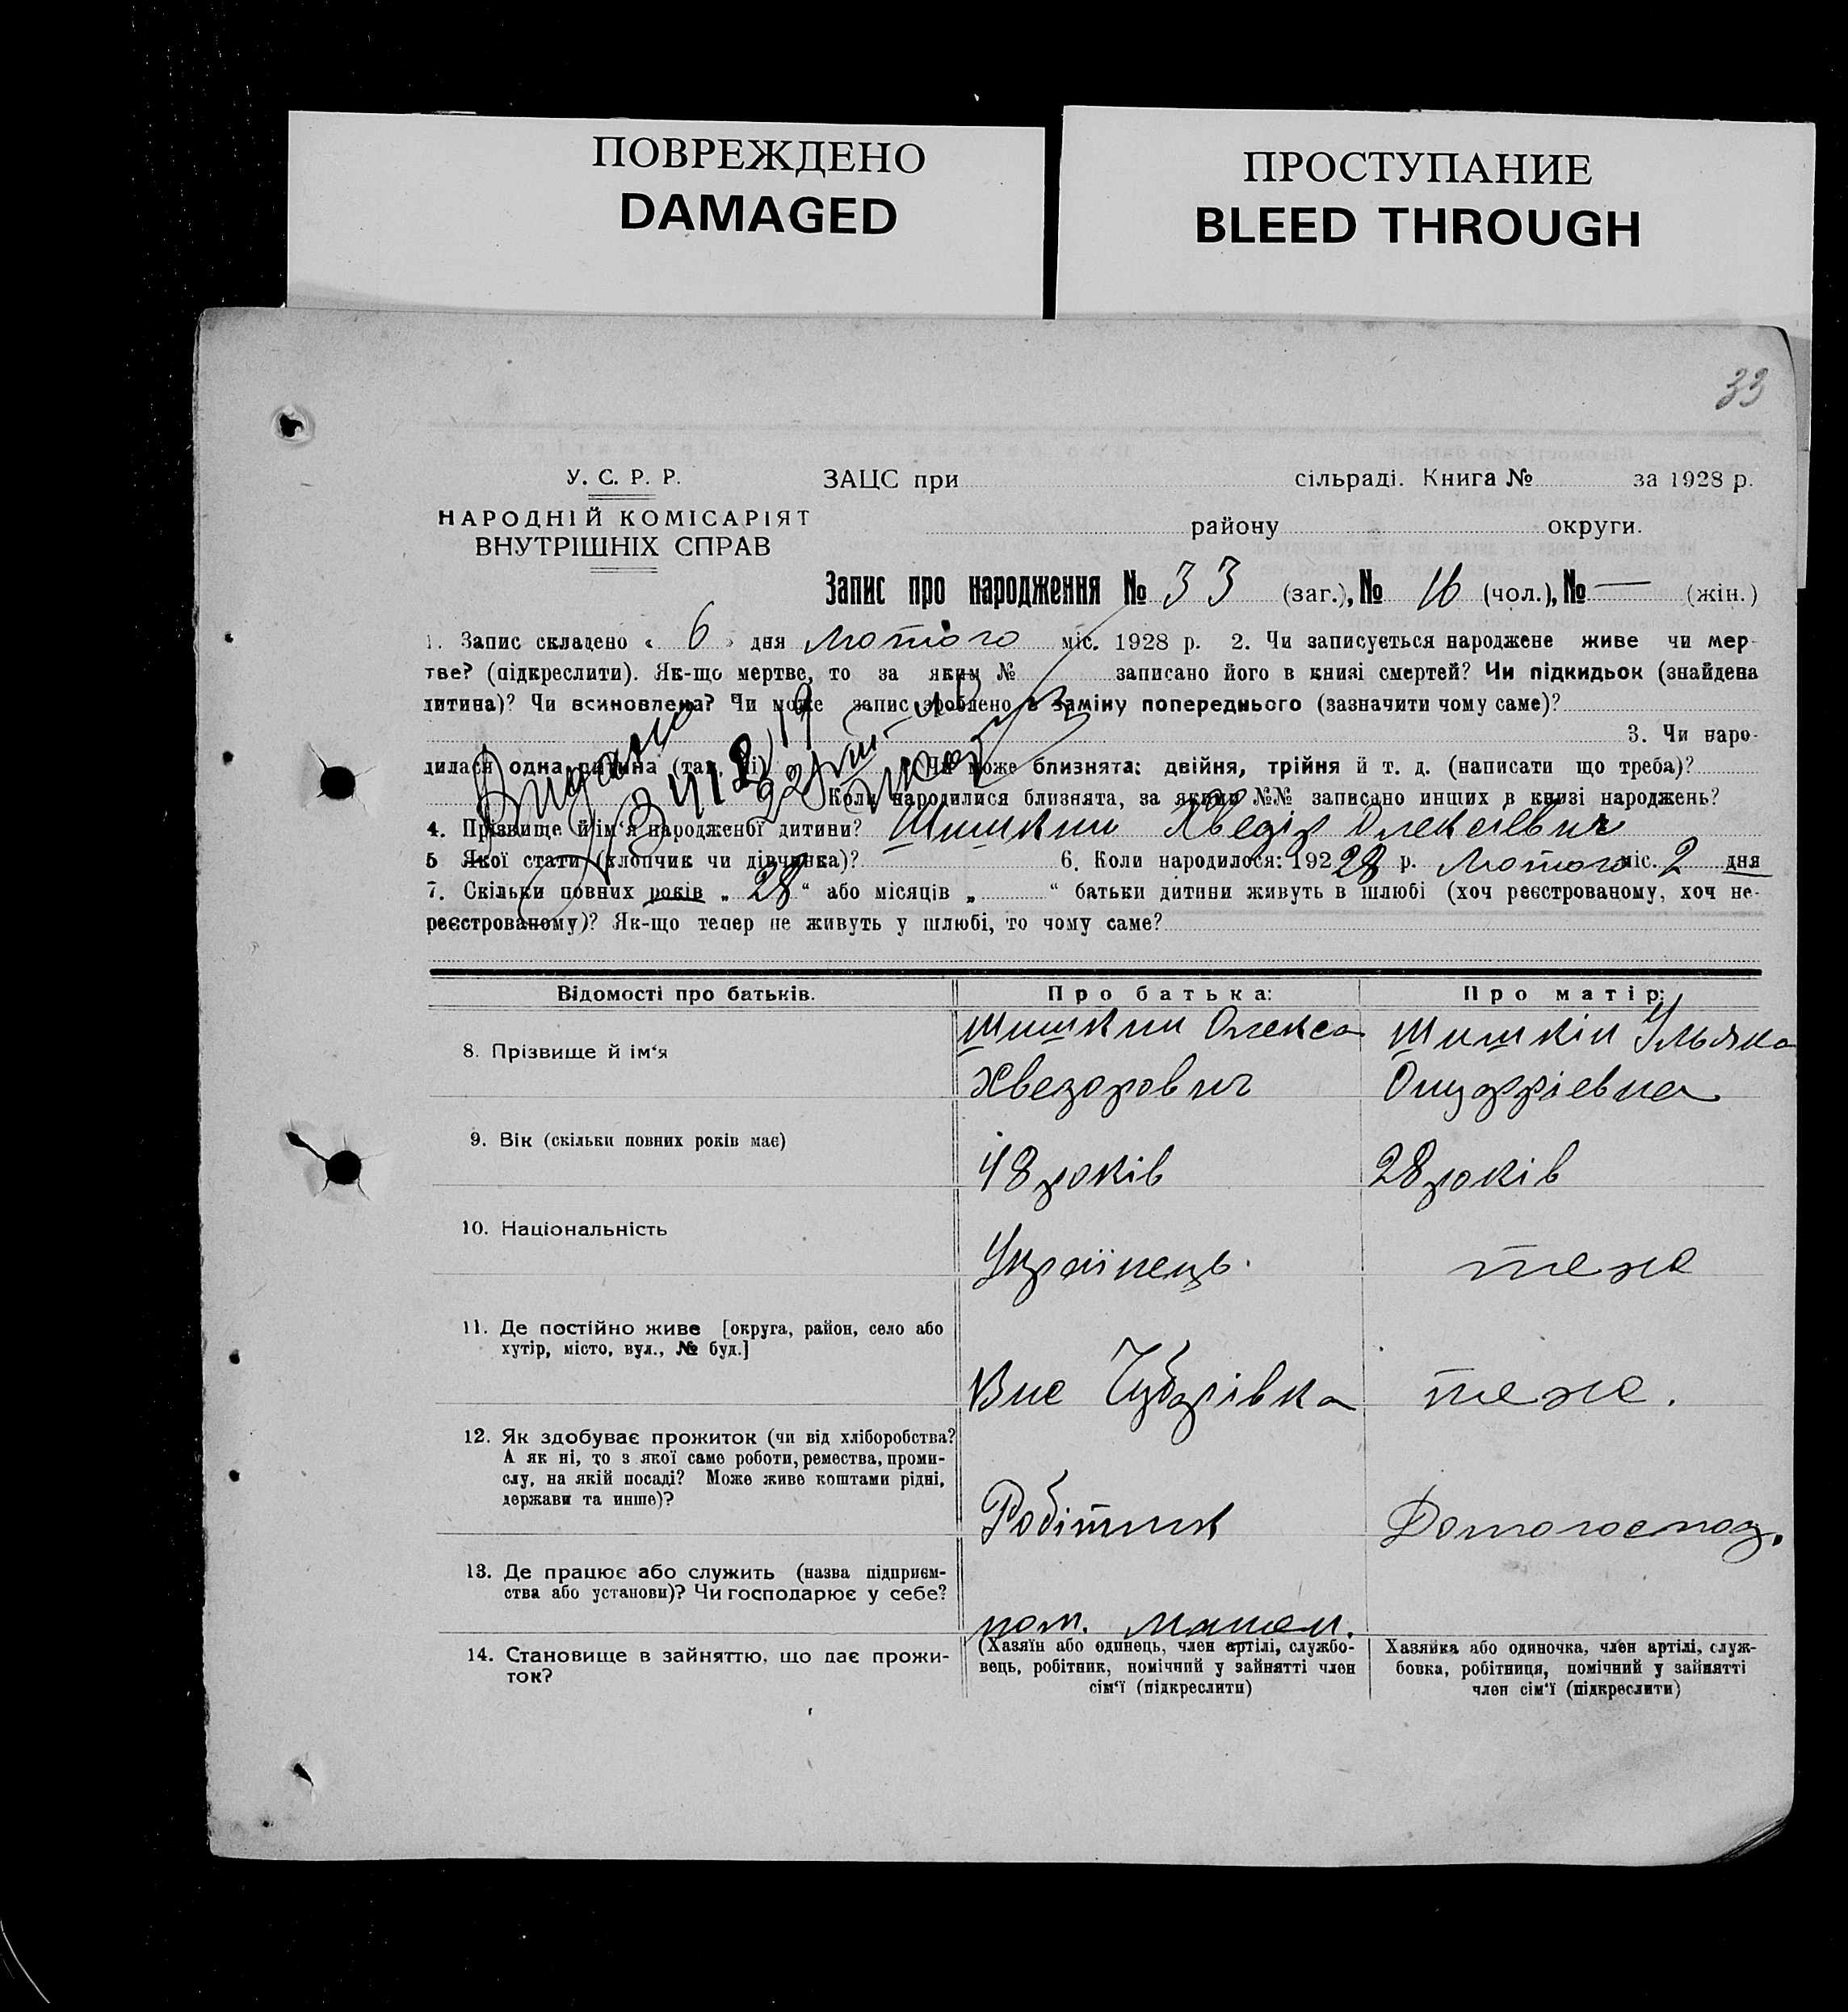 ПОВРЕЖДЕНО
DAMAGED
ПРОСТУПАНИЕ
BLEED THROUGH
33
У. С. Р. Р.
НАРОДНІЙ КОМІСАРІЯТ
ВНУТРІШНІХ СПРАВ
ЗАЦС при сільраді. Книга № за 1928 р.
району округи.
Запис про народження № 33 (заг.), № 16 (чол.), № — (жін.)
1. Запис складено « 6 » дня Лютого міс. 1928 р. 2. Чи записується народжене живе чи мер-
тве? (підкреслити). Як-що мертве, то за яким № записано його в книзі смертей? Чи підкидьок (знайдена
дитина)? Чи всиновлена? Чи може запис зроблено в заміну попереднього (зазначити чому саме)?
3. Чи наро-
дилася одна дитина (так, ні) Чи може близнята: двійня, трійня й т. д. (написати що треба)?
Видано
Коли народилися близнята, за якими №№ записано инших в книзі народжень?
4. Прізвище й ім‘я народженої дитини? Шишкин Хведір Олексієвич
5 Якої стати (хлопчик чи дівчинка)? 6. Коли народилося: 192 28 р. Лютого міс. 2 дня
7. Скільки повних років „ 28 “ або місяців „ “ батьки дитини живуть в шлюбі (хоч реєстрованому, хоч не-
реєстрованому)? Як-що тепер не живуть у шлюбі, то чому саме?
Відомості про батьків. Про батька: Про матір:
8. Прізвище й ім‘я
Шишкин Олекса
Хведорович
Шишкін Ульяна
Онуфріевна
9. Вік (скільки повних років має)
48 років
28 років
10. Національність
Українець.
теже
11. Де постійно живе [округа, район, село або
хутір, місто, вул., № буд.]
Вис Чубарівка
теже.
12. Як здобуває прожиток (чи від хліборобства?
А як ні, то з якої саме роботи, ремества, проми-
слу, на якій посаді? Може живе коштами рідні,
держави та инше)?
Робітник
Домогоспод.
13. Де працює або служить (назва підприєм-
ства або установи)? Чи господарює у себе?
пом. машин.
14. Становище в зайняттю, що дає прожи-
ток?
(Хазяїн або одинець, член артілі, службо-
вець, робітник, помічний у зайнятті член
сім‘ї (підкреслити)
Хазяйка або одиночка, член артілі, служ-
бовка, робітниця, помічний у зайнятті
член сім‘ї (підкреслити)